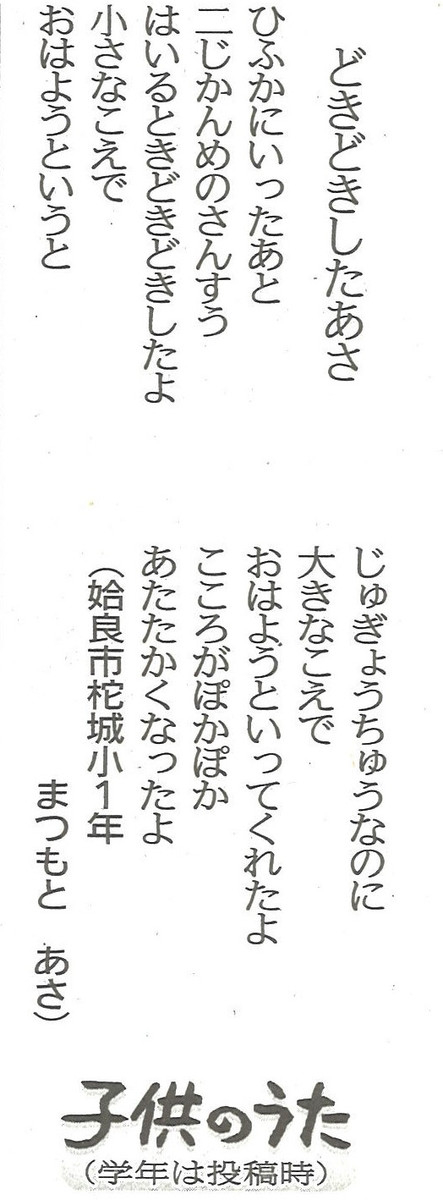 どきどきしたあさ
ひふかにいったあと
二じかんめのさんすう
はいるときどきどきしたよ
小さなこえで
おはようというと
じゅぎょうちゅうなのに
大きなこえで
おはようといってくれたよ
こころがぽかぽか
あたたかくなったよ
（姶良市柁城小1年
まつもと　あさ）
子供のうた
（学年は投稿時）